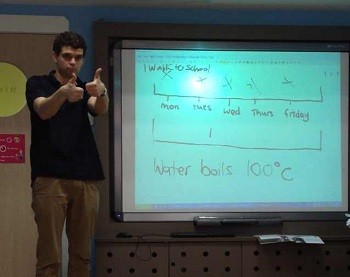 I Walk to School
Mon Tues Wed Thurs Friday
Water boils 100°C